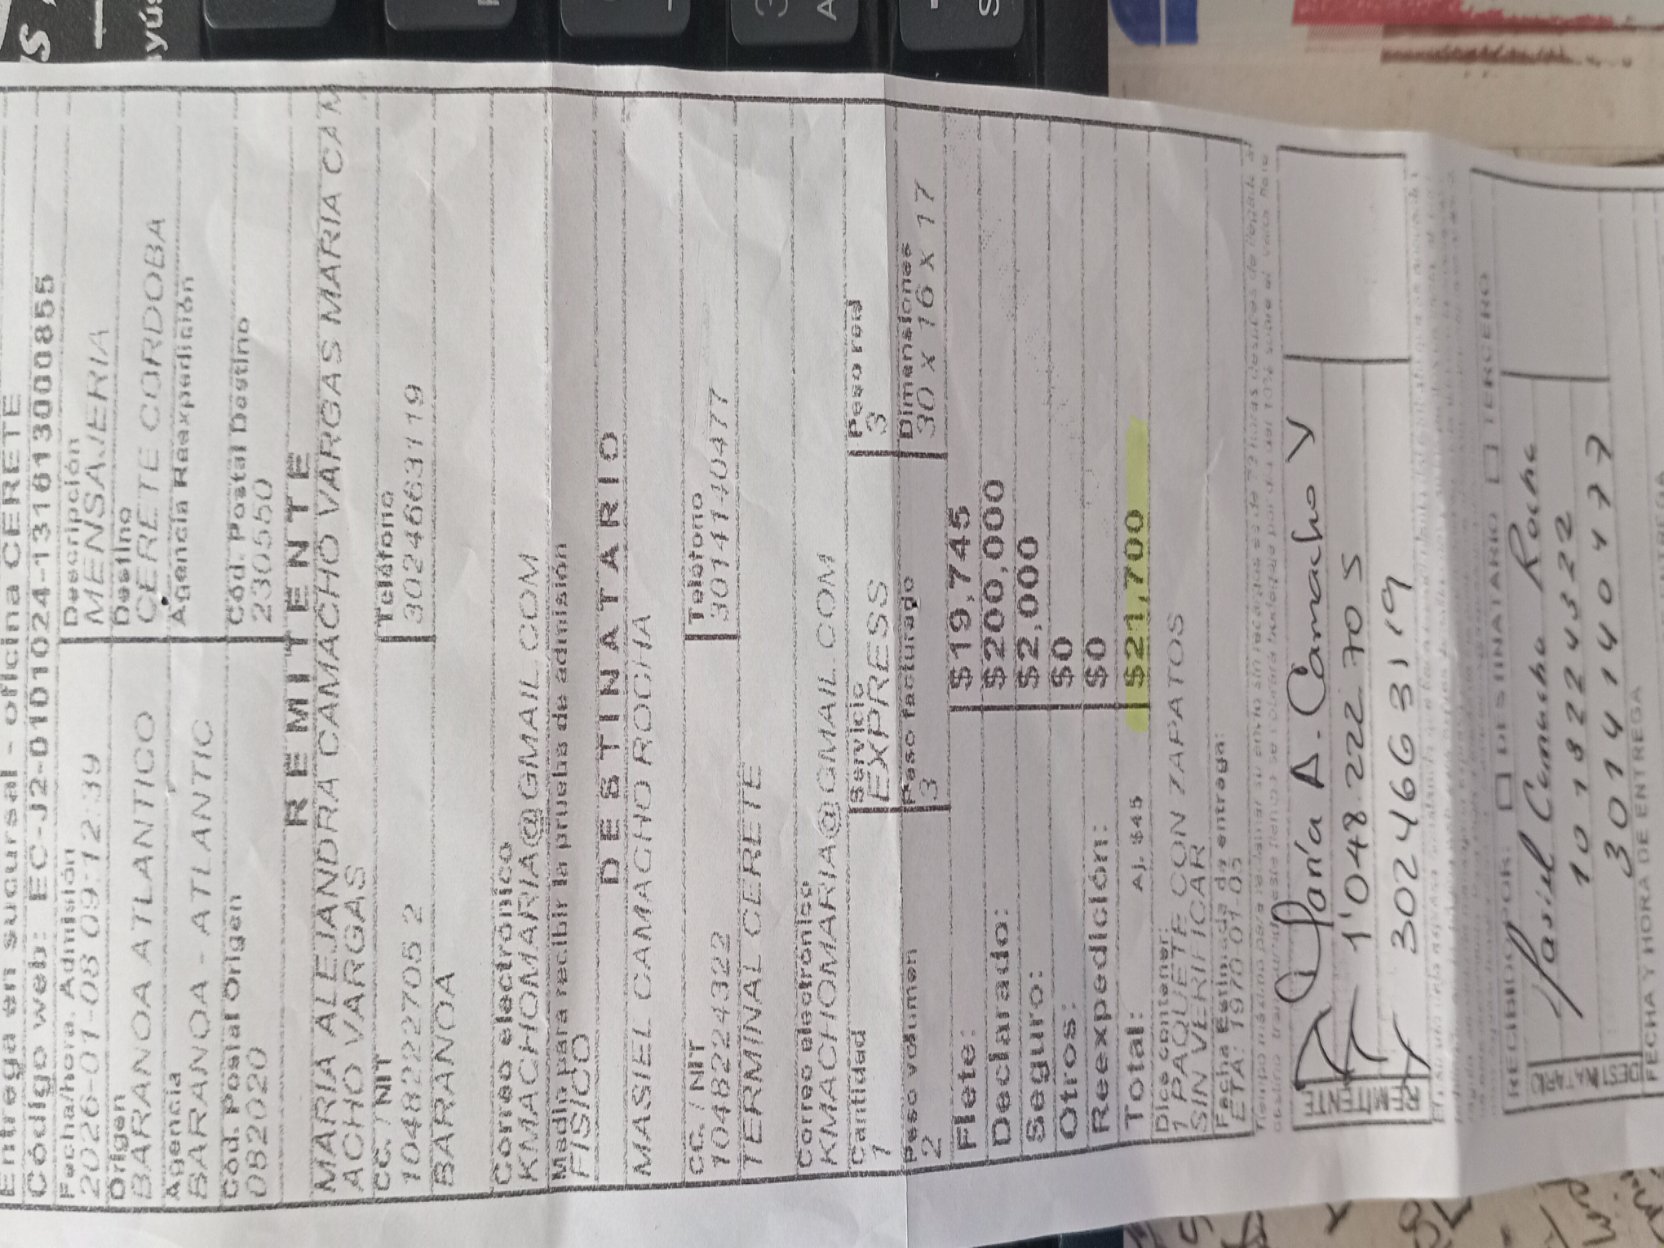 Entrega en sucursal - oficina CERETE
Código web: EC-J2-0101024-131613000855
Fecha/hora. Admisión Descripción
2026-01-08 09:12:39 MENSAJERIA
Origen Destino
BARANOA ATLANTICO CERETE CORDOBA
Agencia Agencia Reexpedición
BARANOA - ATLANTIC
Cód. Postal Origen Cód. Postal Destino
082020 230550
REMITENTE
MARIA ALEJANDRA CAMACHO VARGAS MARIA CAM
ACHO VARGAS
CC. / NIT Teléfono
1048222705 2 3024663119
BARANOA
Correo electrónico
KMACHOMARIA@GMAIL.COM
Medio para recibir la prueba de admisión
FISICO
DESTINATARIO
MASIEL CAMACHO ROCHA
CC. / NIT Teléfono
1048224322 3014140477
TERMINAL CERETE
Correo electrónico
KMACHOMARIA@GMAIL.COM
Cantidad Servicio Peso real
1 EXPRESS 3
Peso volumen Peso facturado Dimensiones
2 3 30 x 16 x 17
Flete: $19,745
Declarado: $200,000
Seguro: $2,000
Otros: $0
Reexpedición: $0
Total: Aj. $45 $21,700
Dice contener:
1 PAQUETE CON ZAPATOS
SIN VERIFICAR
Fecha Estimada de entrega:
ETA: 1970-01-03
REMITENTE
María A. Camacho V
1'048.222.705
3024663119
RECIBIDO POR: DESTINATARIO TERCERO
DESTINATARIO
Masiel Camacho Rocha
3014140477
FECHA Y HORA DE ENTREGA